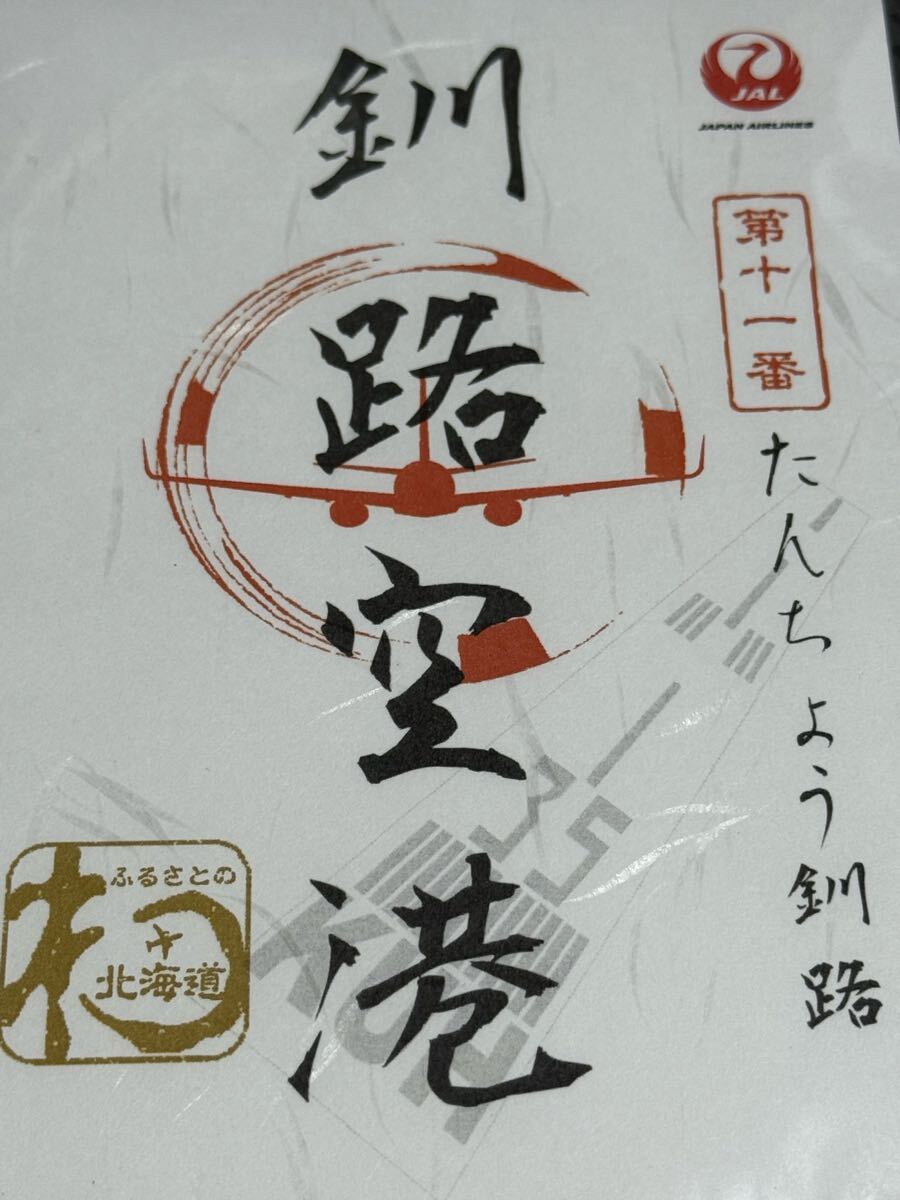 JAL
JAPAN AIRLINES
第十一番
たんちょう釧路
釧路空港
ふるさとの
北海道
35
KUH